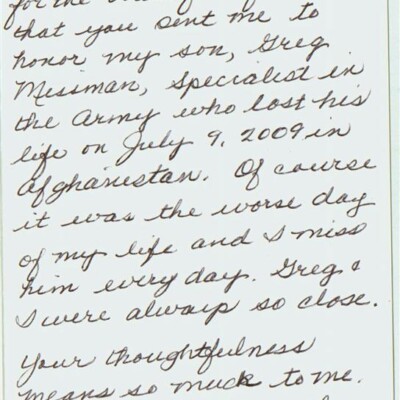 for the
that you sent me to
honor my son, Greg
Missman, Specialist in
the Army who lost his
life on July 9, 2009 in
Afghanistan. Of course
it was the worse day
of my life and I miss
him every day. Greg &
I were always so close.
Your thoughtfulness
means so much to me.